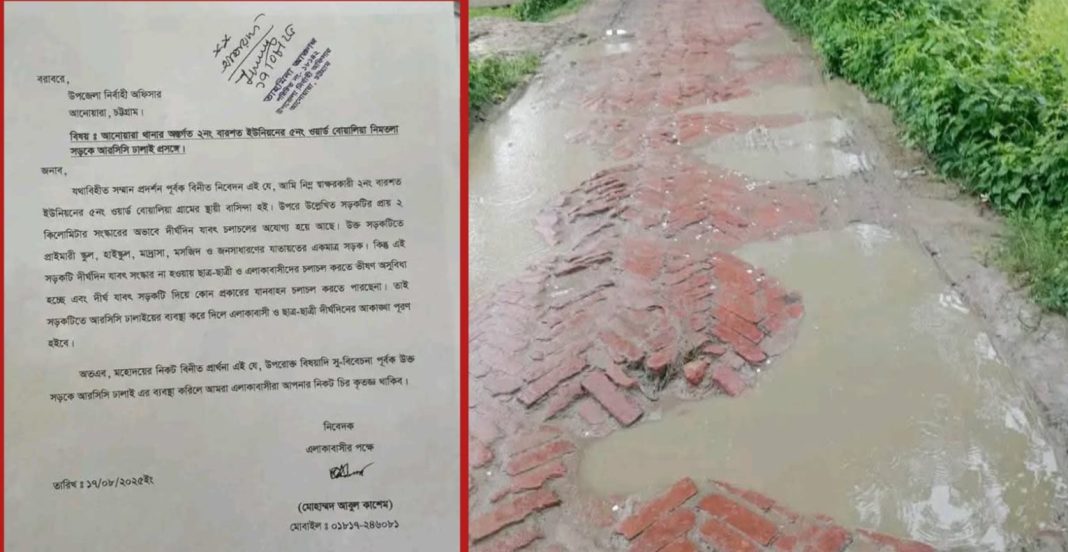 তাহমিনা আক্তার
উপজেলা নির্বাহী অফিসার
আনোয়ারা, চট্টগ্রাম।
বরাবরে,
উপজেলা নির্বাহী অফিসার
আনোয়ারা, চট্টগ্রাম।
বিষয় ঃ আনোয়ারা থানার অন্তর্গত ২নং বারশত ইউনিয়নের ৫নং ওয়ার্ড বোয়ালিয়া নিমতলা
সড়কে আরসিসি ঢালাই প্রসঙ্গে।
জনাব,
যথাবিহীত সম্মান প্রদর্শন পূর্বক বিনীত নিবেদন এই যে, আমি নিম্ন স্বাক্ষরকারী ২নং বারশত
ইউনিয়নের ৫নং ওয়ার্ড বোয়ালিয়া গ্রামের স্থায়ী বাসিন্দা হই। উপরে উল্লেখিত সড়কটির প্রায় ২
কিলোমিটার সংস্কারের অভাবে দীর্ঘদিন যাবৎ চলাচলের অযোগ্য হয়ে আছে। উক্ত সড়কটিতে
প্রাইমারী স্কুল, হাইস্কুল, মাদ্রাসা, মসজিদ ও জনসাধারণের যাতায়তের একমাত্র সড়ক। কিন্তু এই
সড়কটি দীর্ঘদিন যাবৎ সংস্কার না হওয়ায় ছাত্র-ছাত্রী ও এলাকাবাসীদের চলাচল করতে ভীষণ অসুবিধা
হচ্ছে এবং দীর্ঘ যাবৎ সড়কটি দিয়ে কোন প্রকারের যানবাহন চলাচল করতে পারছেনা। তাই
সড়কটিতে আরসিসি ঢালাইয়ের ব্যবস্থা করে দিলে এলাকাবাসী ও ছাত্র-ছাত্রী দীর্ঘদিনের আকাঙ্খা পূরণ
হইবে।
অতএব, মহোদয়ের নিকট বিনীত প্রার্থনা এই যে, উপরোক্ত বিষয়াদি সু-বিবেচনা পূর্বক উক্ত
সড়কে আরসিসি ঢালাই এর ব্যবস্থা করিলে আমরা এলাকাবাসীরা আপনার নিকট চির কৃতজ্ঞ থাকিব।
নিবেদক
এলাকাবাসীর পক্ষে
তারিখ ঃ ১৭/০৮/২০২৫ইং
(মোহাম্মদ আবুল কাশেম)
মোবাইল ঃ ০১৮১৭-২৪৬০৮১